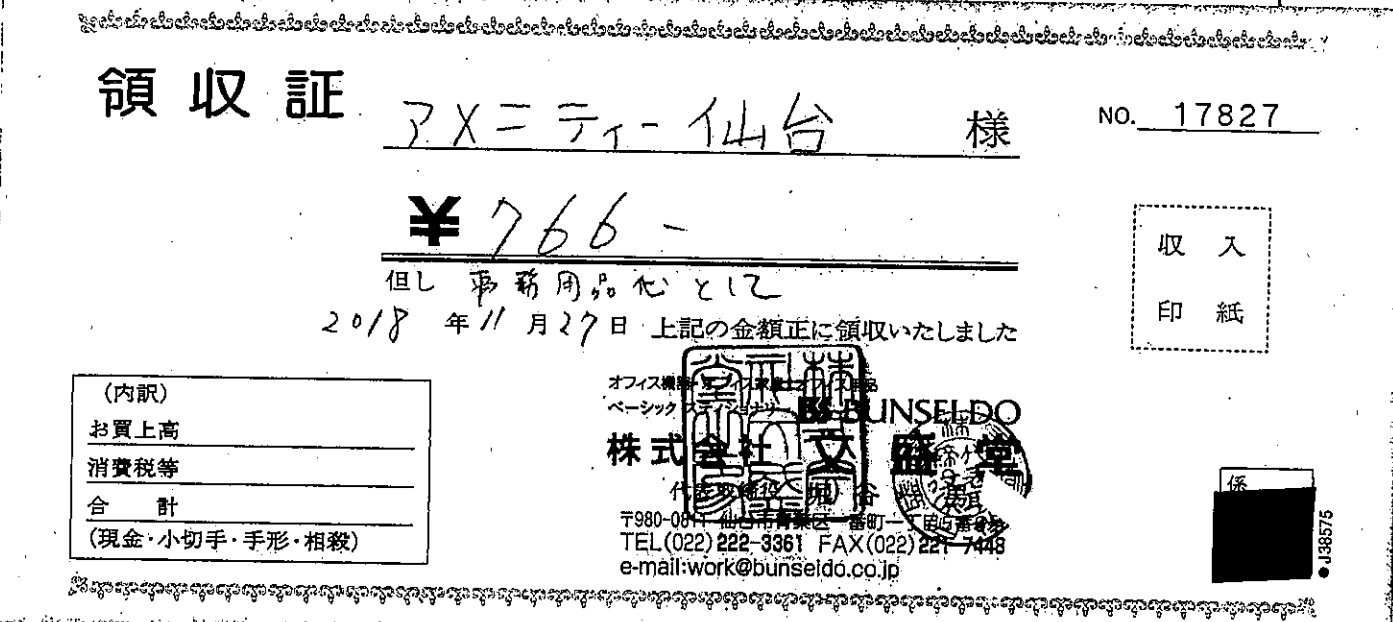 領収証
アメニティー仙台 様
NO. 17827
¥766-
但し 事務用品代として
2018年11月27日 上記の金額正に領収いたしました
収入
印紙
(内訳)
お買上高
消費税等
合計
(現金・小切手・手形・相殺)
オフィス機器・オフィス家具・オフィス用品
ベーシックステイショナリー BUNSEIDO
株式会社 文盛堂
代表取締役 堀 谷
〒980-0811 仙台市青葉区一番町一丁目
TEL(022)222-3361 FAX(022)221-7448
e-mail:work@bunseido.co.jp
係
●J38575